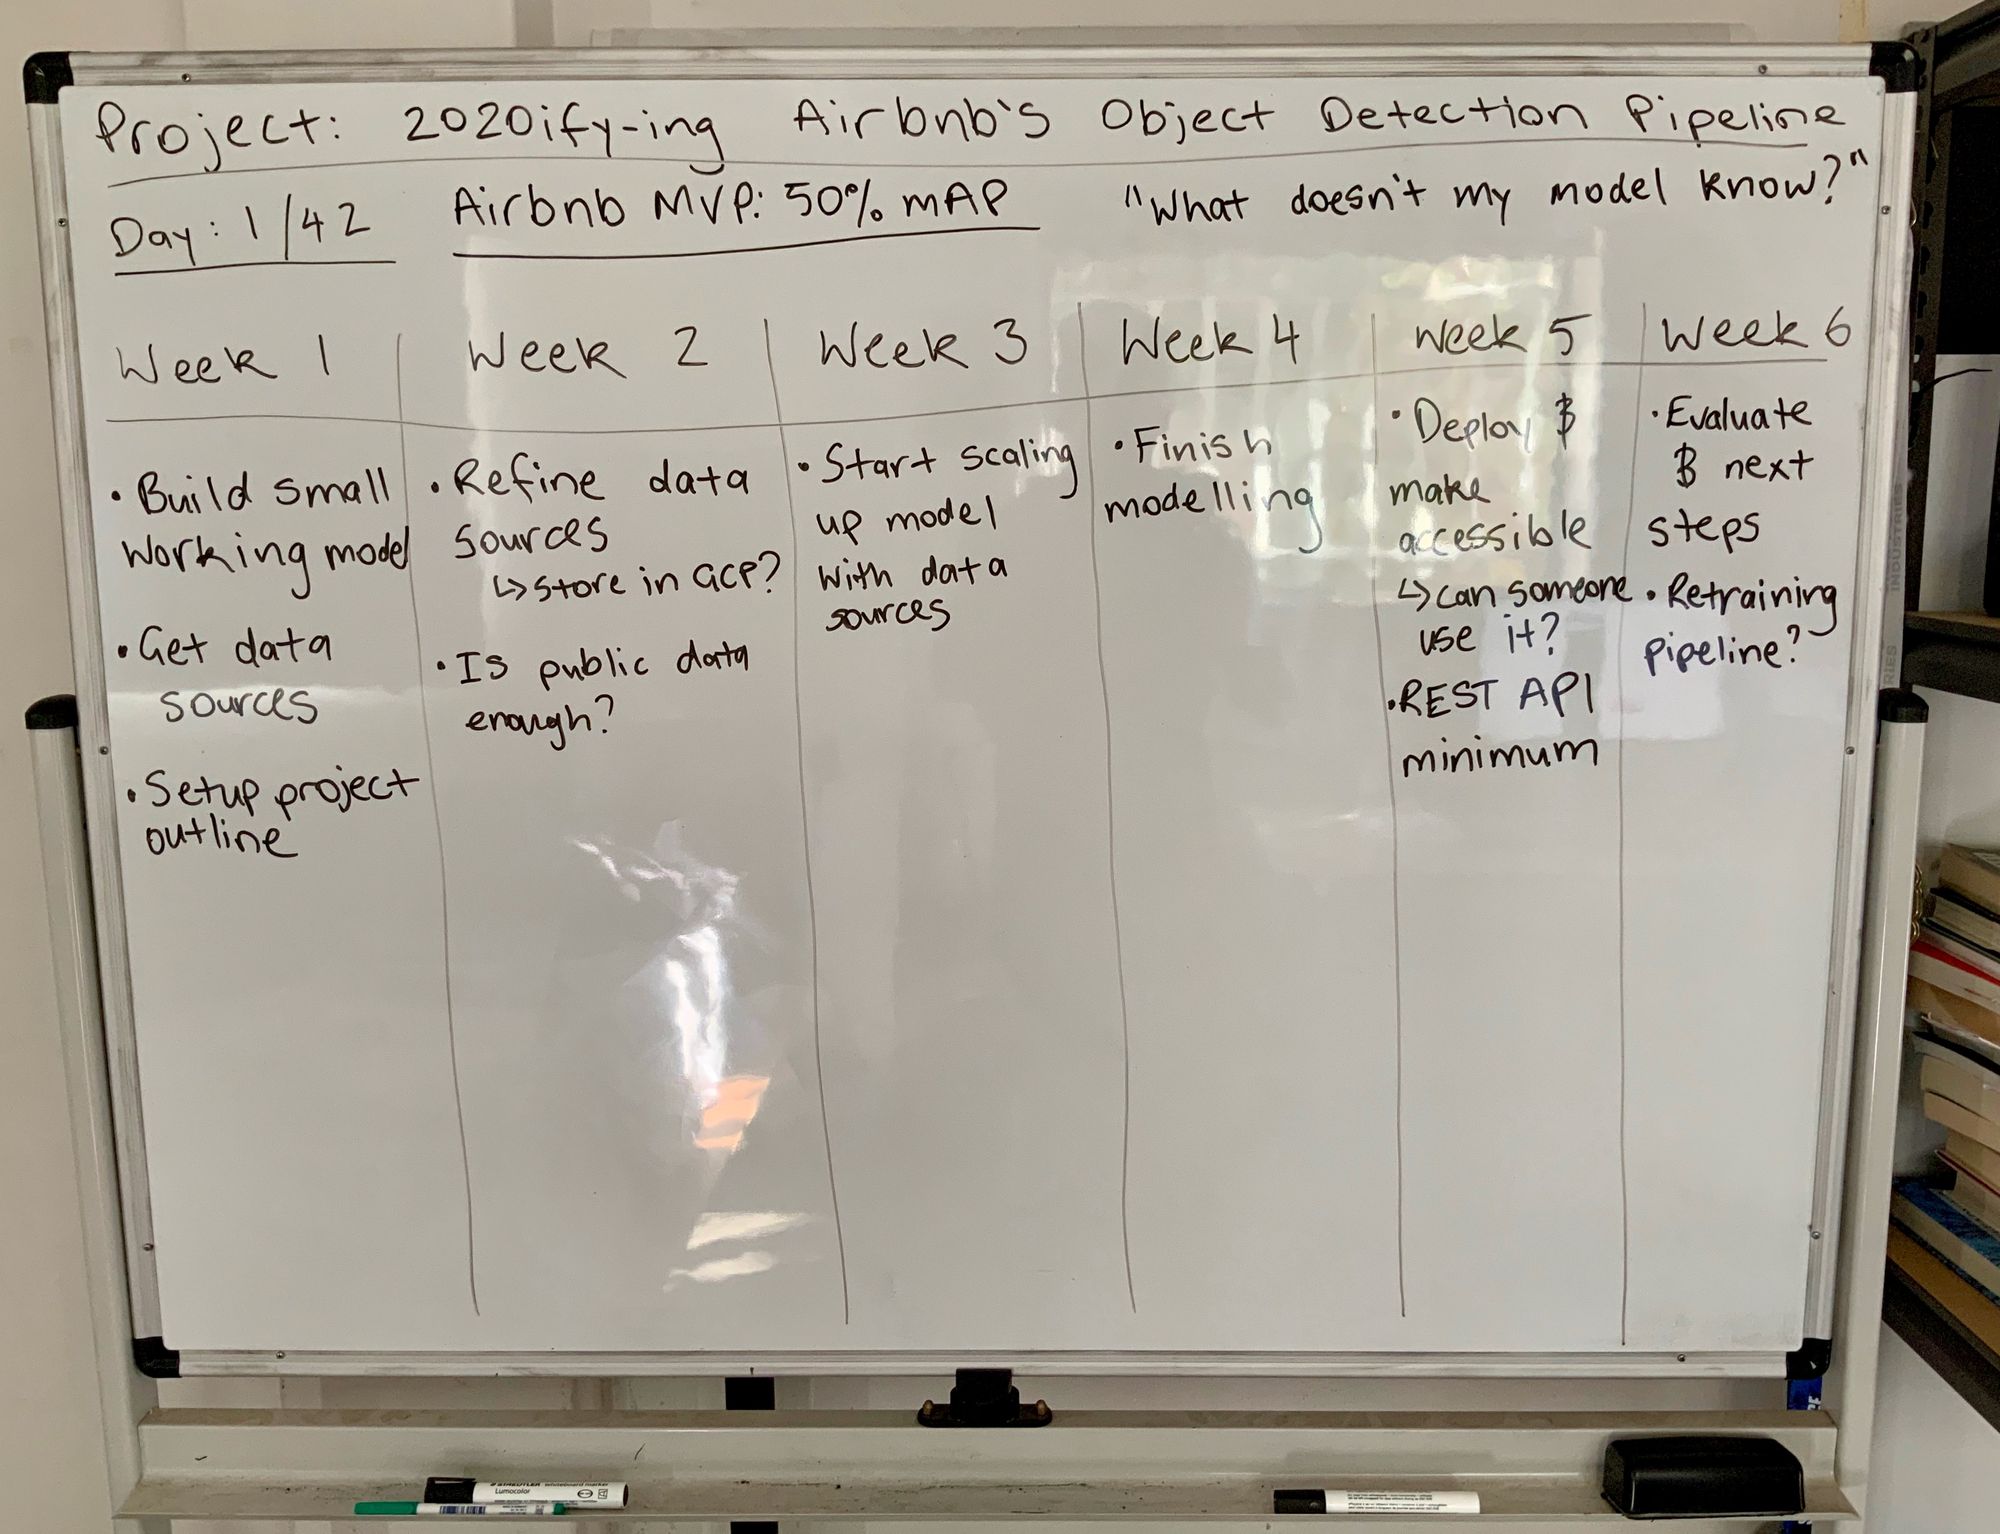 Project: 2020ify-ing Airbnb's Object Detection Pipeline
Day: 1/42
Airbnb MVP: 50% mAP
"What doesn't my model know?"
Week 1
• Build small
working model
• Get data
sources
• Setup project
outline
Week 2
• Refine data
sources
↳ store in GCP?
• Is public data
enough?
Week 3
• Start scaling
up model
with data
sources
Week 4
• Finish
modelling
Week 5
• Deploy &
make
accessible
↳ can someone
use it?
• REST API
minimum
Week 6
• Evaluate
& next
steps
• Retraining
pipeline?
INDUSTRIES
STAEDTLER whiteboard marker
Lumocolor